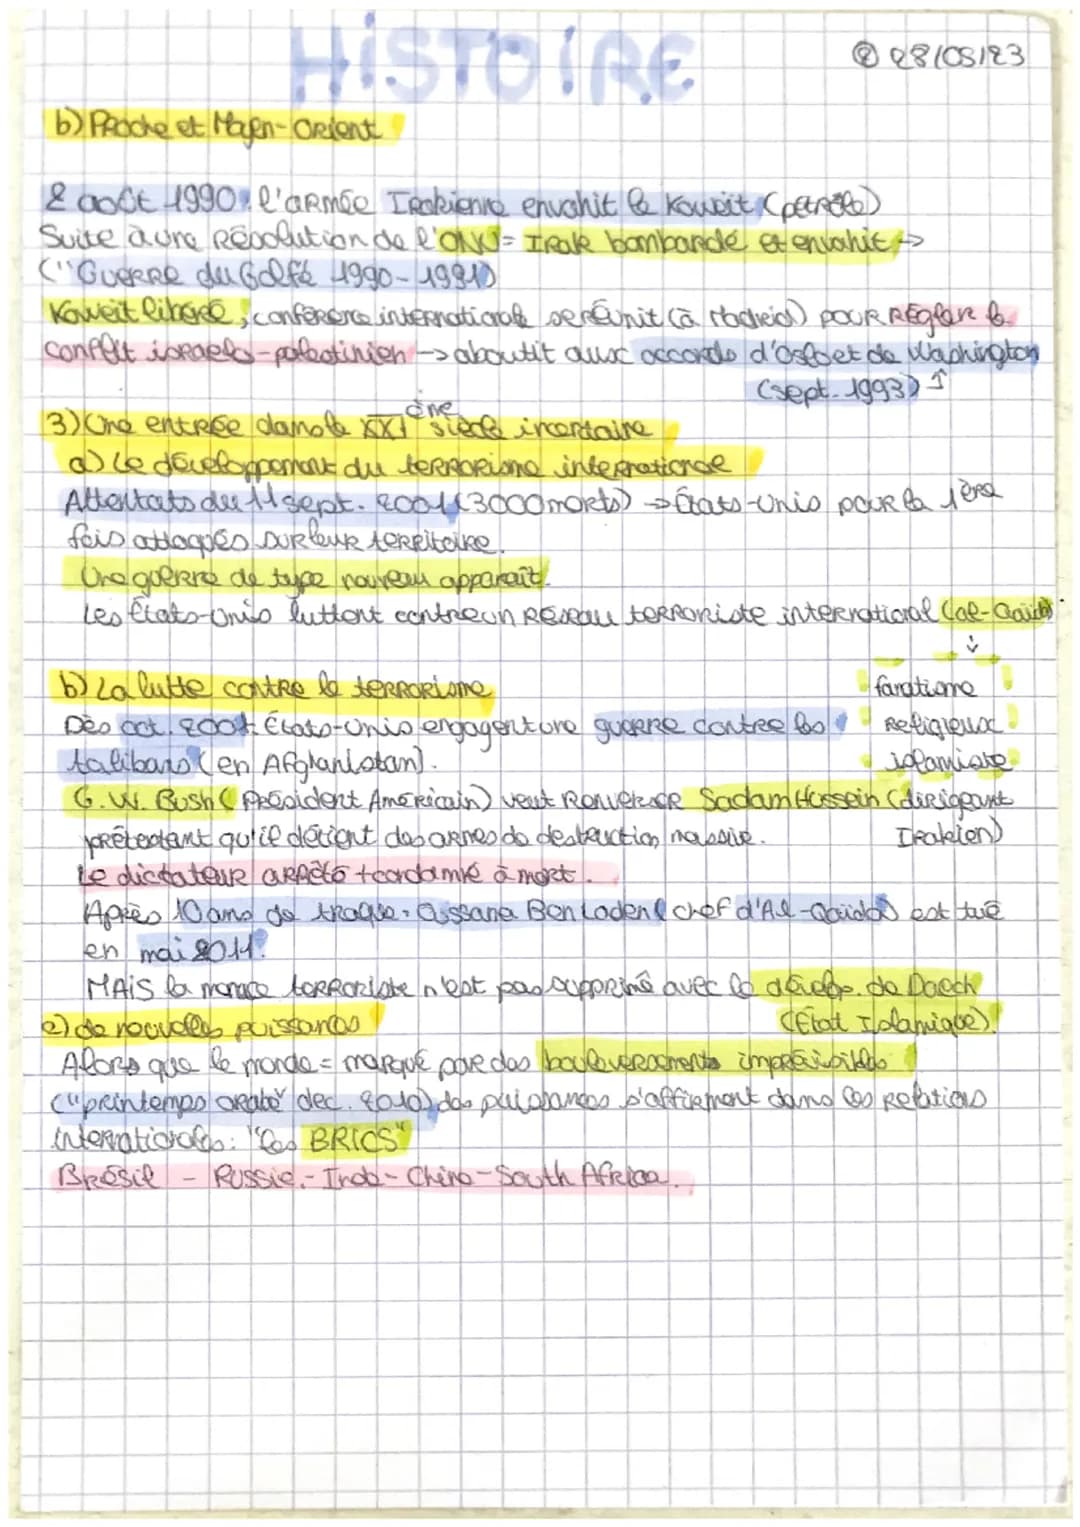 HiSTOIRE
② 28/05/23
b) Proche et Moyen-Orient
2 août 1990: l'armée Irakienne envahit le Koweït (pétrole)
Suite à une Résolution de l'ONU = Irak bombardé et envahit →
("Guerre du Golfe 1990-1991)
Koweït libéré, conférence international se réunit (à Madrid) pour Régler le
conflit israelo-palestinien → aboutit aux accords d'Oslo et de Washington
(sept. 1993) ↑
3) Une entrée dans le XXI ème siècle incertaine
a) Le développement du terrorisme internationale
Attentats du 11 sept. 2001 (3000 morts) → États-Unis pour la 1ère
fois attaqués sur leur territoire.
Une guerre de type nouveau apparaît.
Les États-Unis luttent contre un Réseau terroriste international (al-Qaïda)
↓
fanatisme
Religieux
islamiste
b) La lutte contre le terrorisme
Dès oct. 2001: États-Unis engagent une guerre contre les
talibans (en Afghanistan).
G.W. Bush (Président Américain) veut Renverser Sadam Hussein (dirigeant
Irakien)
prétextant qu'il détient des armes de destruction massive.
Le dictateur arrêté + condamné à mort.
Après 10 ans de traque: Oussana Ben Laden (chef d'Al-Qaïda) est tué
en mai 2011.
MAIS la menace terroriste n'est pas supprimé avec le dévelop. de Daech
(État Islamique).
c) de nouvelles puissances
Alors que le monde = marqué par des bouleversements imprévisibles
("printemps arabe" dec. 2010) des puissances s'affirment dans les Relations
internationales: "les BRICS"
Brésil - Russie - Inde - Chine - South Africa.